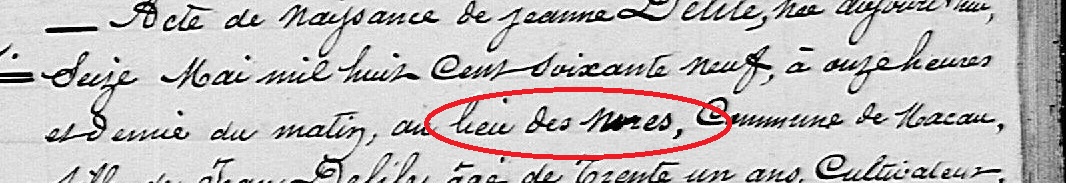 — Acte de naissance de Jeanne Delile, née aujourd'hui,
Seize Mai mil huit Cent Soixante neuf, à onze heures
et demie du matin, au lieu des , Commune de Macau,
fille de Jean Delile, âgé de Trente un ans, Cultivateur,